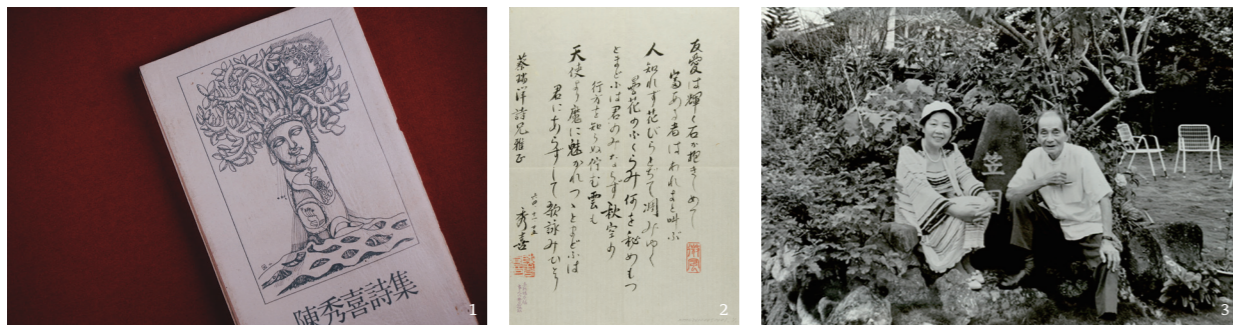 陳秀喜詩集
1
友愛は輝く石か抱きしめて
富める者はわれよと叫ぶ
人知れず花びらとぢて凋みゆく
曇花のふくらみ何を秘めもつ
とまどふは君のみならず秋空の
行方も知らぬ佇む雲も
天使より魔に魅かれつつとまどふは
君にあらずして歌詠みひとり
蔡瑞洋詩兄雅正
秀喜
2
笠
3